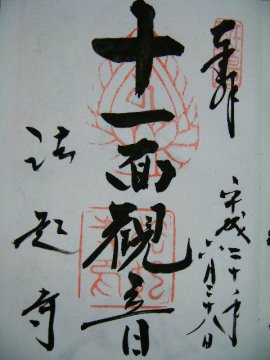 奉拝
平成二十一年
六月二十八日
十一面観音
法起寺